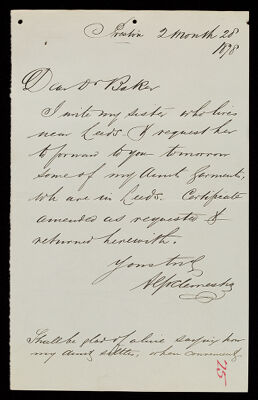 Preston 2 Month 28
1878
Dear Dr Baker
I write my sister who lives
near Leeds & request her
to forward to you tomorrow
some of my Aunts Garments,
wh are in Leeds. Certificate
amended as requested &
returned herewith.
Yours truly
Shall be glad of a line saying how
my Aunt settles, when convenient
25